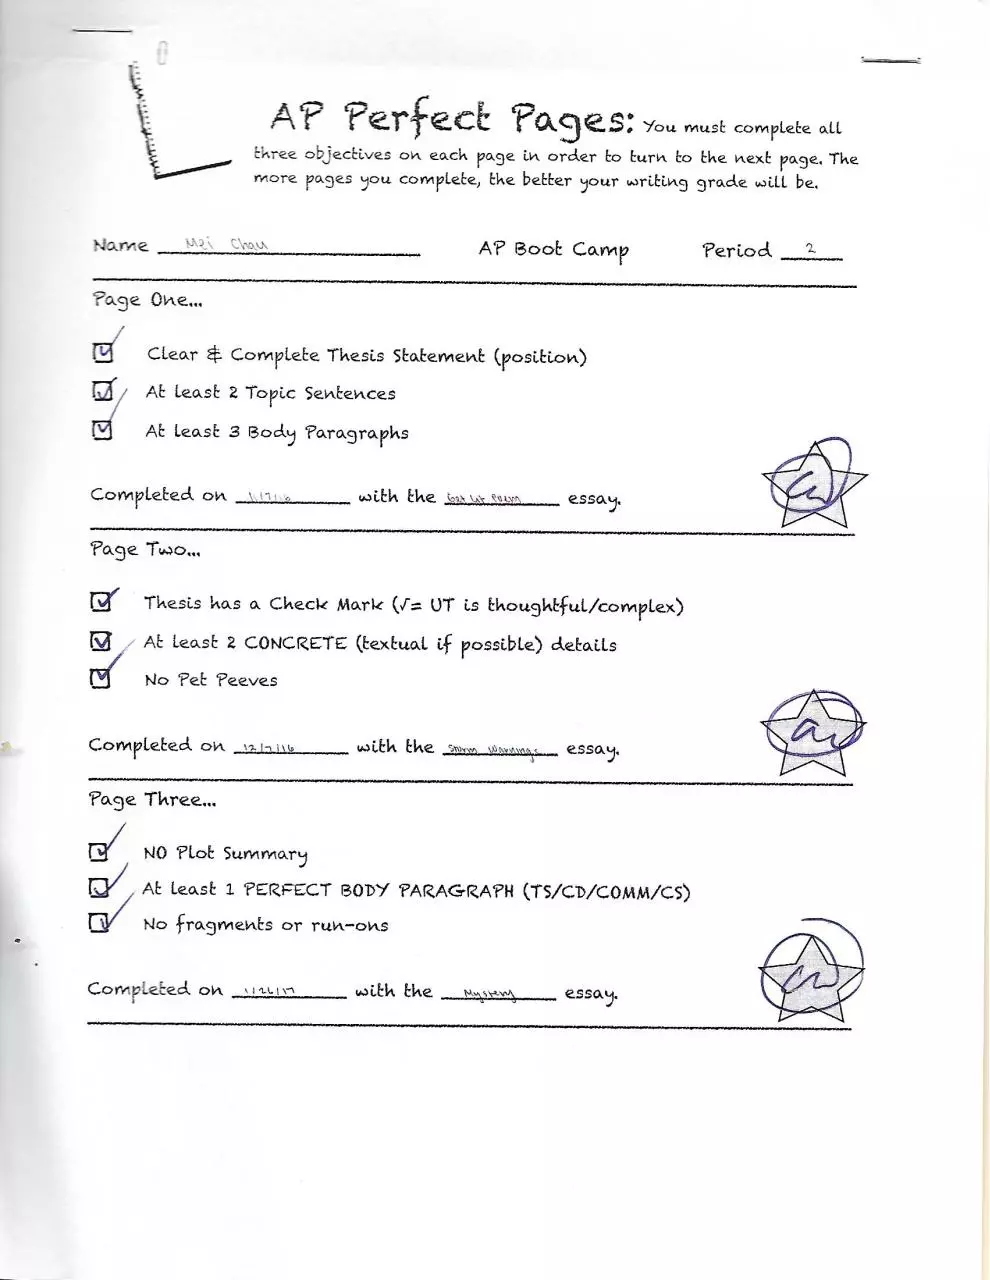 AP Perfect Pages: You must complete all
three objectives on each page in order to turn to the next page. The
more pages you complete, the better your writing grade will be.
Name Mei Chau AP Boot Camp Period 2
Page One...
Clear & Complete Thesis Statement (position)
At Least 2 Topic Sentences
At Least 3 Body Paragraphs
Completed on with the essay.
Page Two...
Thesis has a Check Mark (√= UT is thoughtful/complex)
At Least 2 CONCRETE (textual if possible) details
No Pet Peeves
Completed on 12/7/16 with the Storm Warnings essay.
Page Three...
NO Plot Summary
At Least 1 PERFECT BODY PARAGRAPH (TS/CD/COMM/CS)
No fragments or run-ons
Completed on 1/26/17 with the Mystery essay.